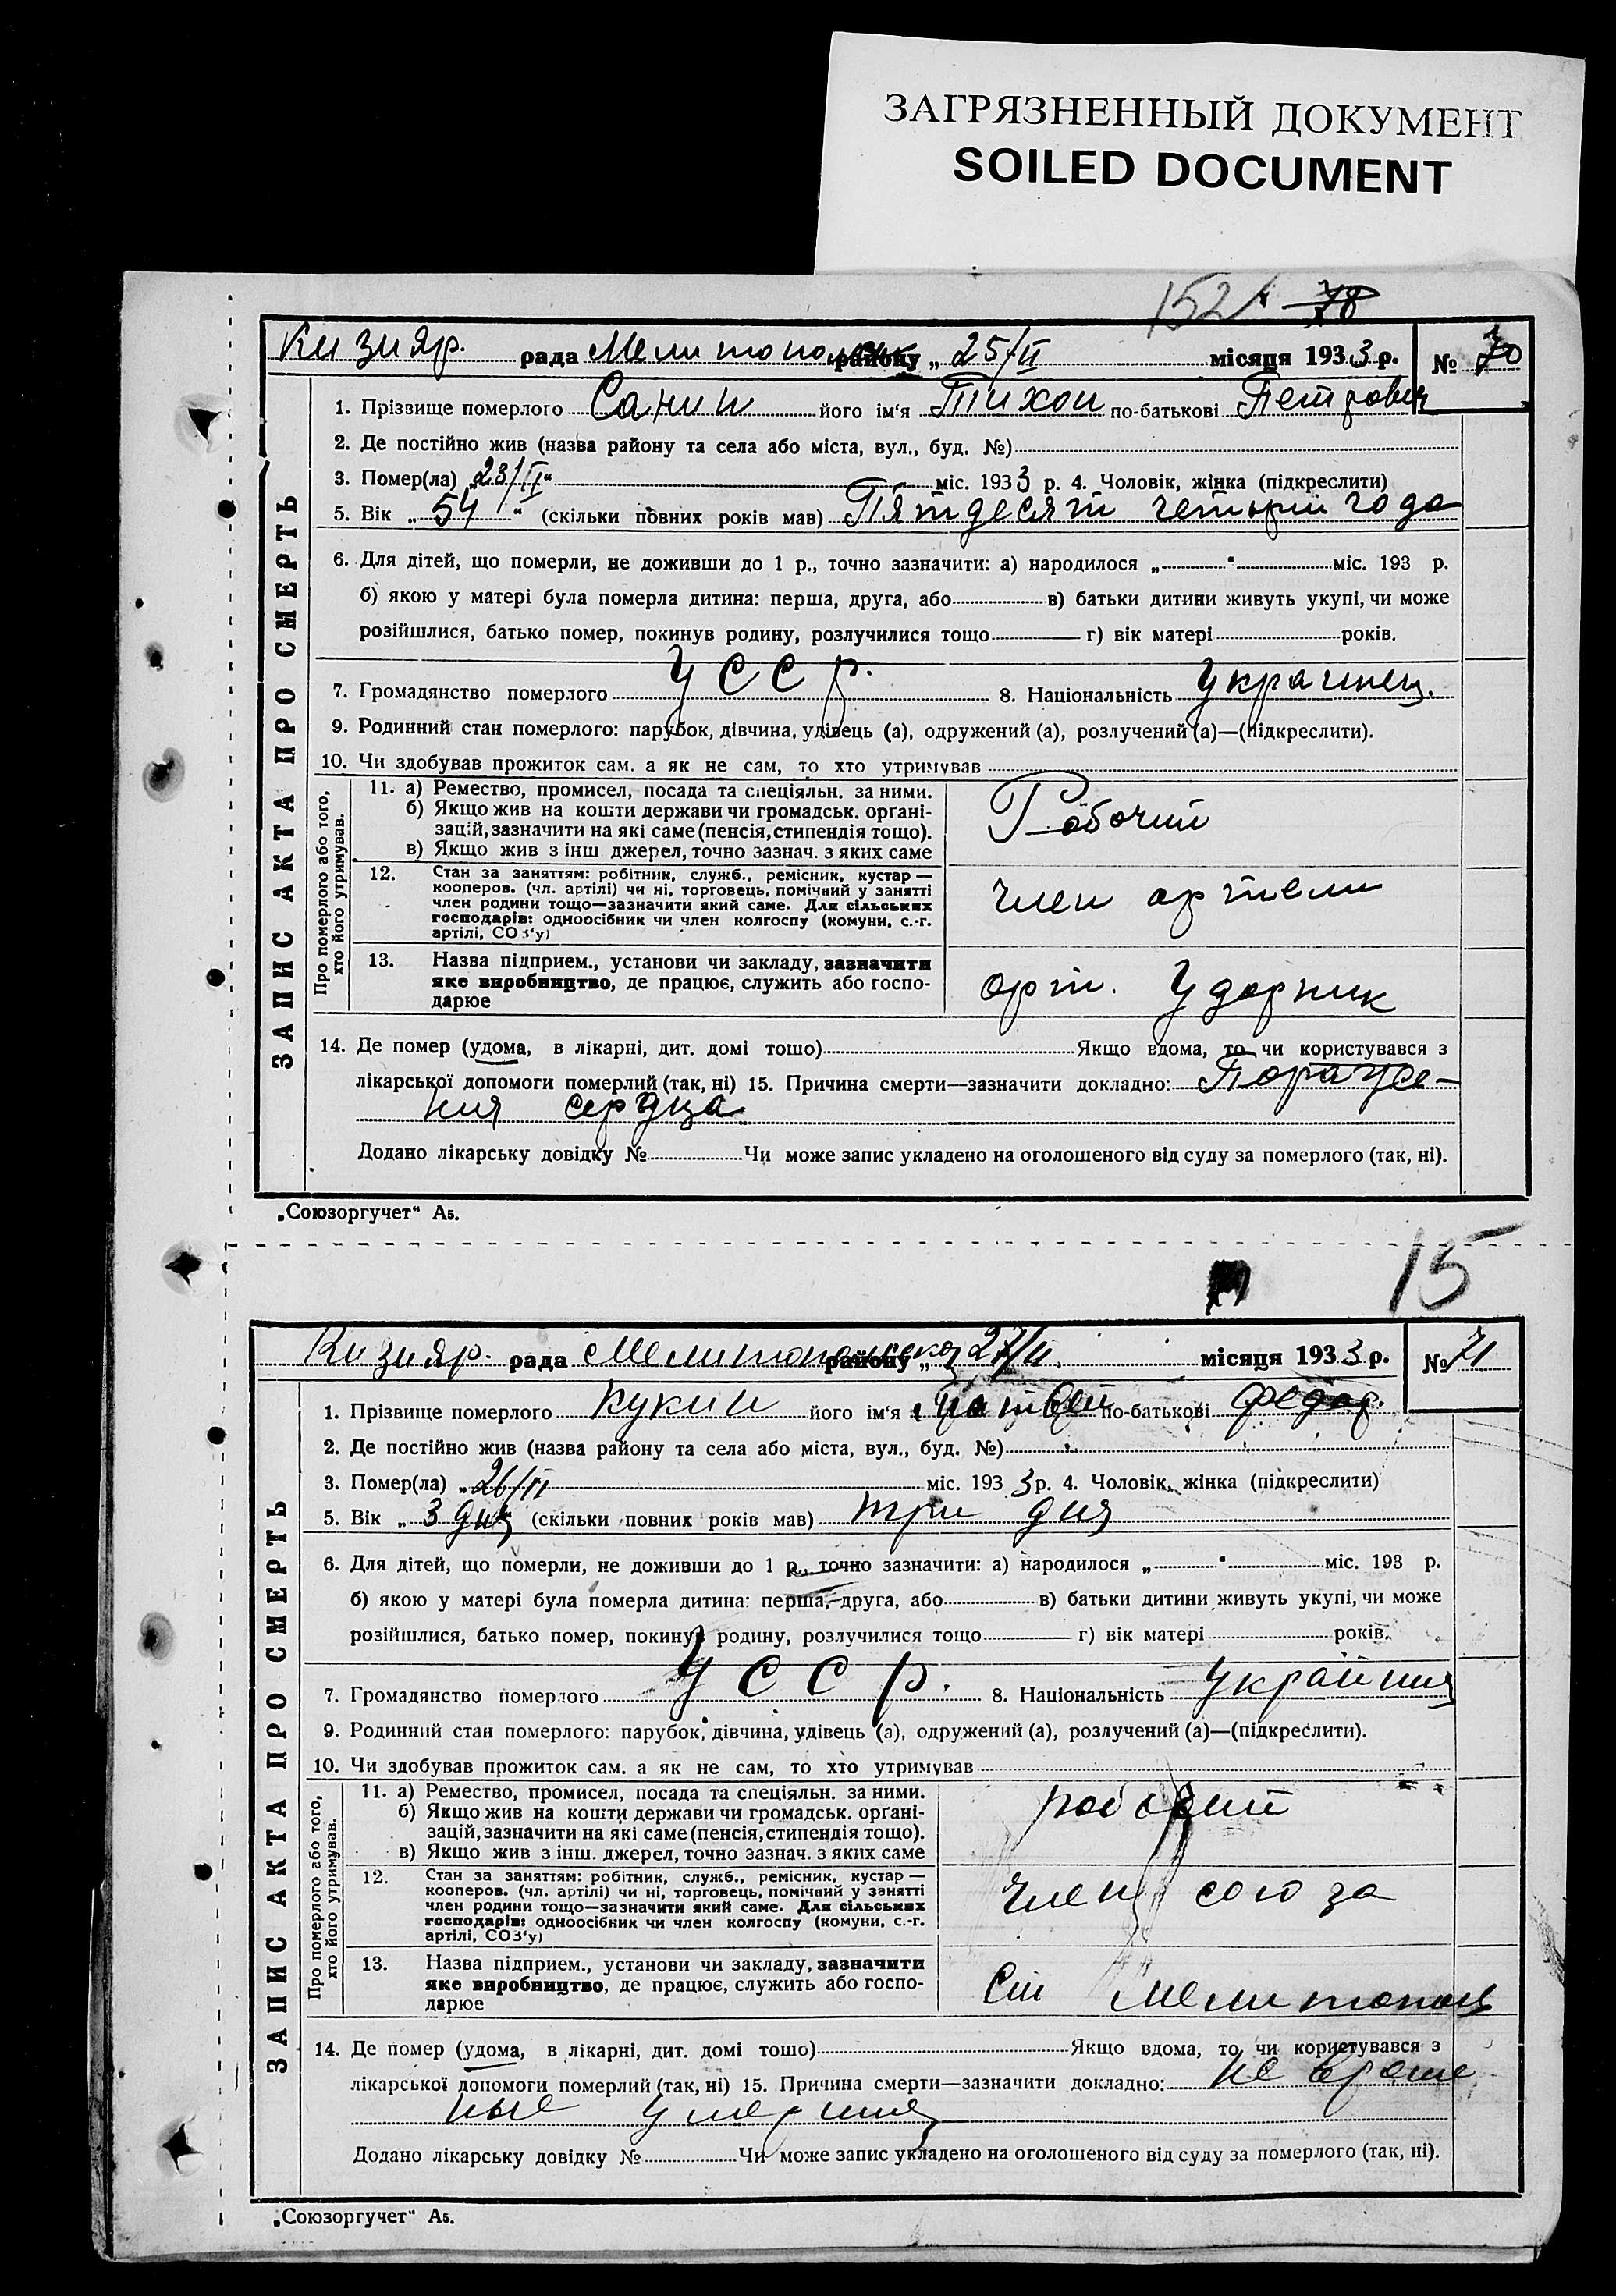 ЗАГРЯЗНЕННЫЙ ДОКУМЕНТ
SOILED DOCUMENT
152 78
Кизияр. рада Мелитопольск району „ 25/II місяця 1933 р. № 70
ЗАПИС АКТА ПРО СМЕРТЬ
1. Прізвище померлого Санин його ім'я Тихон по-батькові Петрович
2. Де постійно жив (назва району та села або міста, вул., буд. №)
3. Помер(ла) „23/II“ міс. 1933 р. 4. Чоловік, жінка (підкреслити)
5. Вік „ 54 “ (скільки повних років мав) Пятдесят четыри года
6. Для дітей, що померли, не доживши до 1 р., точно зазначити: а) народилося „ “ міс. 193 р.
б) якою у матері була померла дитина: перша, друга, або в) батьки дитини живуть укупі, чи може
розійшлися, батько помер, покинув родину, розлучилися тощо г) вік матері років.
7. Громадянство померлого УССР. 8. Національність Украинец.
9. Родинний стан померлого: парубок, дівчина, удівець (а), одружений (а), розлучений (а)—(підкреслити).
10. Чи здобував прожиток сам. а як не сам, то хто утримував
Про померлого або того, хто його утримував.
11. а) Ремество, промисел, посада та спеціяльн. за ними.
б) Якщо жив на кошти держави чи громадськ. орґані-
зацій, зазначити на які саме (пенсія, стипендія тощо).
в) Якщо жив з інш джерел, точно зазнач. з яких саме
Робочий
12. Стан за заняттям: робітник, служб., ремісник, кустар —
кооперов. (чл. артілі) чи ні, торговець, помічний у занятті
член родини тощо—зазначити який саме. Для сільських
господарів: одноосібник чи член колгоспу (комуни, с.-г.
артілі, СОЗ'у)
член артели
13. Назва підприєм., установи чи закладу, зазначити
яке виробництво, де працює, служить або госпо-
дарює
арт. Ударник
14. Де помер (удома, в лікарні, дит. домі тошо) Якщо вдома, то чи користувався з
лікарської допомоги померлий (так, ні) 15. Причина смерти—зазначити докладно: Пораже-
ния сердца
Додано лікарську довідку № Чи може запис укладено на оголошеного від суду за померлого (так, ні).
„Союзоргучет“ А5.
15
Кизияр. рада Мелитопольско району „ 27/II. місяця 1933 р. № 71
ЗАПИС АКТА ПРО СМЕРТЬ
1. Прізвище померлого Кукин його ім'я Матвей по-батькові Федор.
2. Де постійно жив (назва району та села або міста, вул., буд. №)
3. Помер(ла) „26/II міс. 1933 р. 4. Чоловік, жінка (підкреслити)
5. Вік „ 3 дня “ (скільки повних років мав) три дня
6. Для дітей, що померли, не доживши до 1 р., точно зазначити: а) народилося „ “ міс. 193 р.
б) якою у матері була померла дитина: перша, друга, або в) батьки дитини живуть укупі, чи може
розійшлися, батько помер, покинув родину, розлучилися тощо г) вік матері років.
7. Громадянство померлого УССР. 8. Національність
9. Родинний стан померлого: парубок, дівчина, удівець (а), одружений (а), розлучений (а)—(підкреслити).
10. Чи здобував прожиток сам. а як не сам, то хто утримував
Про померлого або того, хто його утримував.
11. а) Ремество, промисел, посада та спеціяльн. за ними.
б) Якщо жив на кошти держави чи громадськ. орґані-
зацій, зазначити на які саме (пенсія, стипендія тощо).
в) Якщо жив з інш. джерел, точно зазнач. з яких саме
рабочий
12. Стан за заняттям: робітник, служб., ремісник, кустар —
кооперов. (чл. артілі) чи ні, торговець, помічний у занятті
член родини тощо—зазначити який саме. Для сільських
господарів: одноосібник чи член колгоспу (комуни, с.-г.
артілі, СОЗ'у)
член союза
13. Назва підприєм., установи чи закладу, зазначити
яке виробництво, де працює, служить або госпо-
дарює
Ст Мелитополь
14. Де помер (удома, в лікарні, дит. домі тошо) Якщо вдома, то чи користувався з
лікарської допомоги померлий (так, ні) 15. Причина смерти—зазначити докладно: не
Додано лікарську довідку № Чи може запис укладено на оголошеного від суду за померлого (так, ні).
„Союзоргучет“ А5.